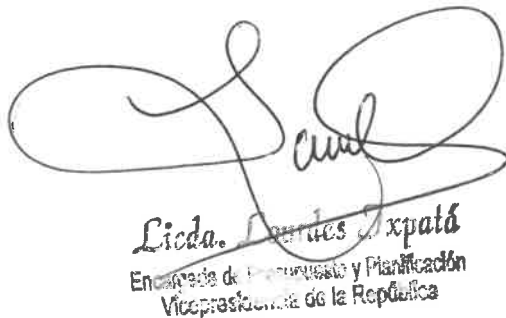 Licda. Lourdes Ixpatá
Encargada de Presupuesto y Planificación
Vicepresidencia de la República